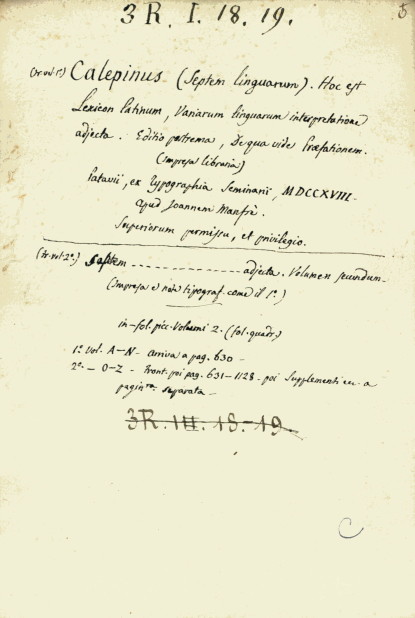 3 R. I. 18. 19.
5
(fr. vol. 1º) Calepinus (Septem linguarum). Hoc est
Lexicon Latinum, Variarum linguarum interpretatione
adjecta. Editio postrema, De qua vide Præfationem.
(impresa libraria)
Patavii, ex Typographia Seminarii, MDCCXVIII-
Apud Joannem Manfrè.
Superiorum permissu, et privilegio.
(fr. vol. 2º.) Septem - - - - - - - - - - - - - adjecta. Volumen secundum-
(impresa e note tipograf. come il 1º.)
in-fol. picc. Volumi 2. (fol. quadr.)
1º. Vol. A-N- arriva a pag. 630-
2º.- O-Z- front. poi pag. 631-1128- poi Supplementi a
pagin.ne separata-
3R. III. 18.-19.
C